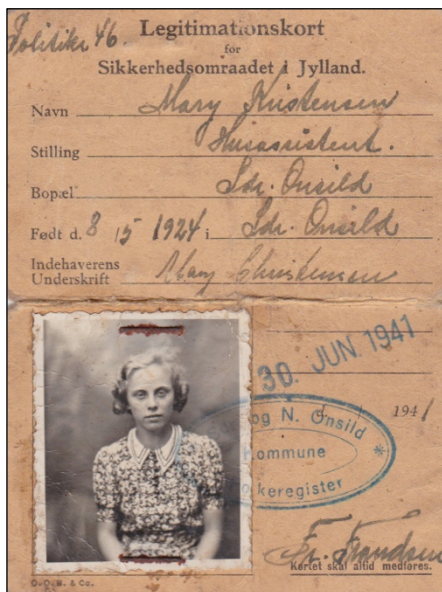 Politikr 46.
Legitimationskort
for
Sikkerhedsomraadet i Jylland.
Navn Mary Kristensen
Stilling Husassistent.
Bopæl Sdr. Onsild
Født d. 8 15 1924 i Sdr. Onsild
Indehaverens
Underskrift Mary Christensen
30. JUN. 1941
1941
og N. Onsild
Kommune
Folkeregister
Fr. Frandsen
Kortet skal altid medføres.